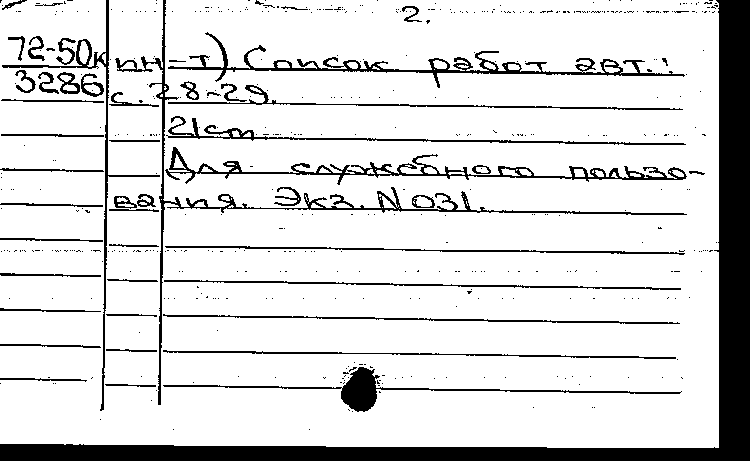 2.
72-50к ин-т). Список работ авт.:
3286 с. 28-29.
21cm
Для служебного пользо-
вания. Экз. N 031.